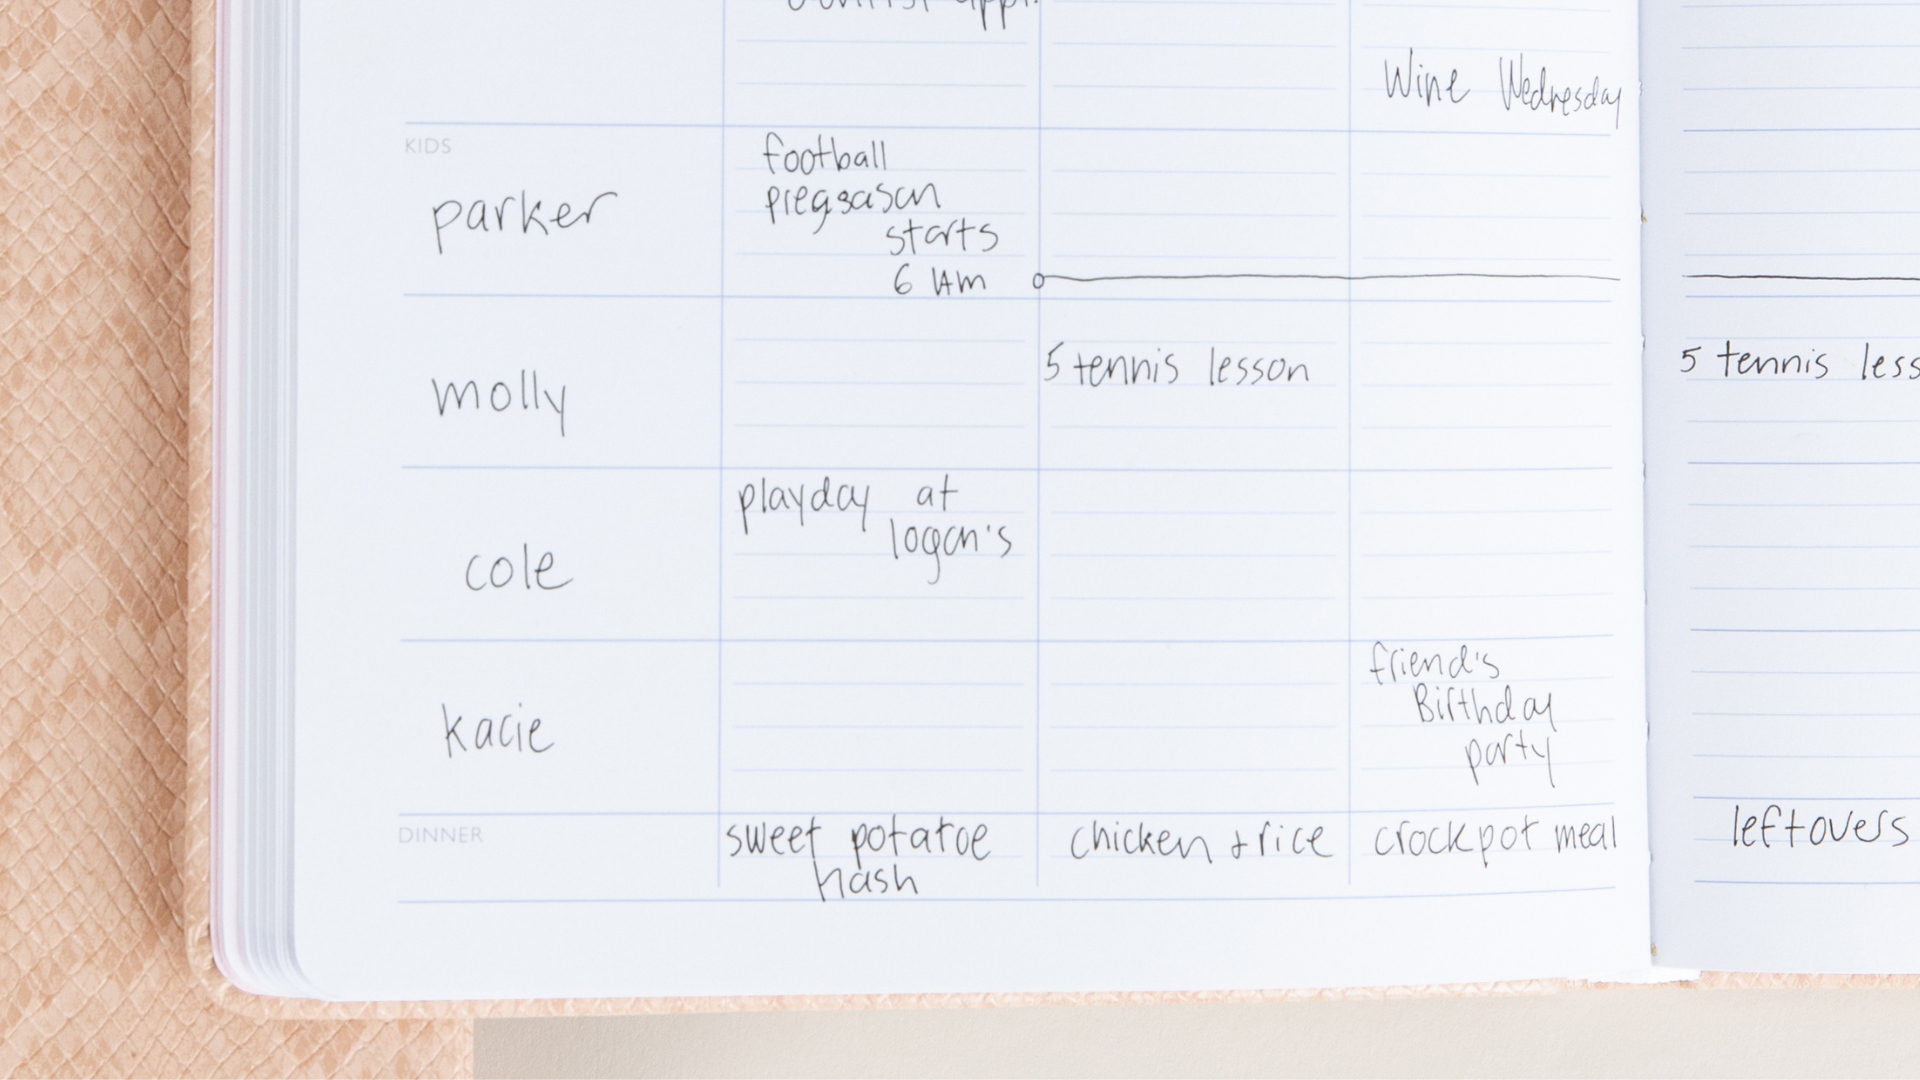 Wine Wednesday
KIDS
parker
football
preseason
starts
6 AM
molly
5 tennis lesson
5 tennis less
cole
playday at
logan's
kacie
friend's
Birthday
party
DINNER
sweet potatoe
hash
chicken + rice
crockpot meal
leftovers